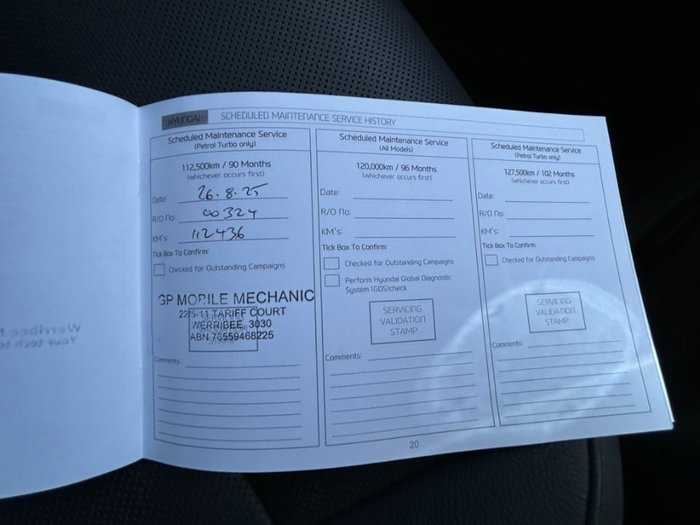 HYUNDAI SCHEDULED MAINTENANCE SERVICE HISTORY
Scheduled Maintenance Service
(Petrol Turbo only)
112,500km / 90 Months
(whichever occurs first)
Date: 26.8.25
R/O No: 00324
KM's: 112436
Tick Box To Confirm:
Checked for Outstanding Campaigns
GP MOBILE MECHANIC
22/5-11 TARIFF COURT
WERRIBEE, 3030
ABN 76559468225
Comments:
Scheduled Maintenance Service
(All Models)
120,000km / 96 Months
(whichever occurs first)
Date:
R/O No:
KM's:
Tick Box To Confirm:
Checked for Outstanding Campaigns
Perform Hyundai Global Diagnostic
System (GDS)check
SERVICING
VALIDATION
STAMP
Comments:
Scheduled Maintenance Service
(Petrol Turbo only)
127,500km / 102 Months
(whichever occurs first)
Date:
R/O No:
KM's:
Tick Box To Confirm:
Checked for Outstanding Campaigns
SERVICING
VALIDATION
STAMP
Comments:
20